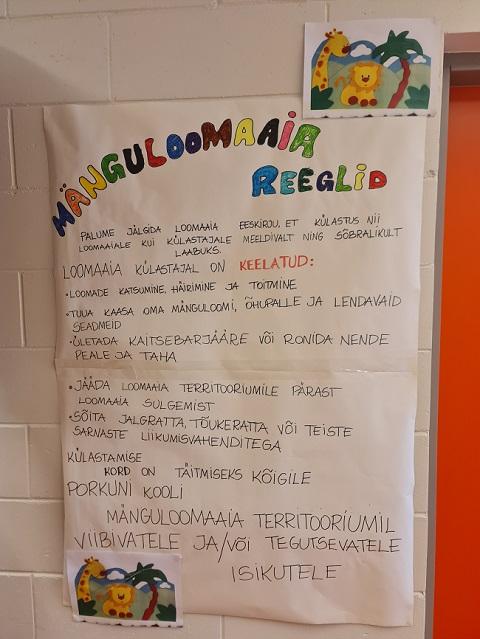 MÄNGULOOMAAIA
REEGLID
PALUME JÄLGIDA LOOMAAIA EESKIRJU, ET KÜLASTUS NII
LOOMAAIALE KUI KÜLASTAJALE MEELDIVALT NING SÕBRALIKULT
LAABUKS.
LOOMAAIA KÜLASTAJAL ON KEELATUD:
• LOOMADE KATSUMINE, HÄIRIMINE JA TOITMINE
• TUUA KAASA OMA MÄNGULOOMI, ÕHUPALLE JA LENDAVAID
SEADMEID
• ÜLETADA KAITSEBARJÄÄRE VÕI RONIDA NENDE
PEALE JA TAHA
• JÄÄDA LOOMAAIA TERRITOORIUMILE PÄRAST
LOOMAAIA SULGEMIST
• SÕITA JALGRATTA, TÕUKERATTA VÕI TEISTE
SARNASTE LIIKUMISVAHENDITEGA
KÜLASTAMISE
KORD ON TÄITMISEKS KÕIGILE
PORKUNI KOOLI
MÄNGULOOMAAIA TERRITOORIUMIL
VIIBIVATELE JA/VÕI TEGUTSEVATELE
ISIKUTELE